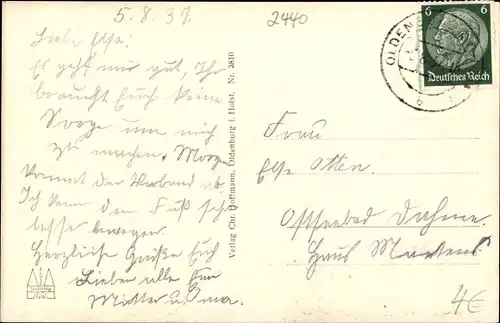 5.8.37.
2440
Liebe Else!
Es geht mir gut, Ihr
braucht Euch keine
Sorge um mich
zu machen. Morgen
kommt der Verband ab.
Ich kann den Fuß schon
besser bewegen.
Herzliche Grüße Euch
Lieben alle
Mutter
Verlag Chr. Hoffmann, Oldenburg i. Holst. Nr. 3810
OLDEN
6 6
Deutsches Reich
b
Frau
Else Otten.
Ostseebad Dahme.
Haus
4€